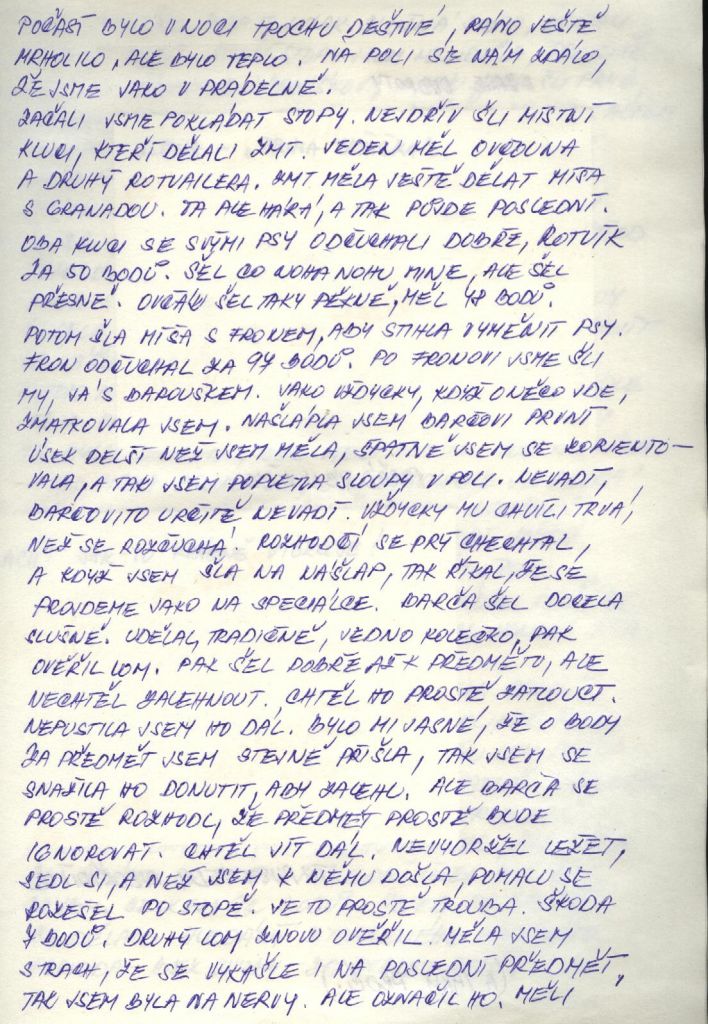 POČASÍ BYLO V NOCI TROCHU DEŠTIVÉ, RÁNO JEŠTĚ
MRHOLILO, ALE BYLO TEPLO. NA POLI SE NÁM ZDÁLO,
ŽE JSME JAKO V PRÁDELNĚ.
ZAČALI JSME POKLÁDAT STOPY. NEJDŘÍV ŠLI MÍSTNÍ
KLUCI, KTEŘÍ DĚLALI ZMT. JEDEN MĚL OVČOUNA
A DRUHÝ ROTVAILERA. ZMT MĚLA JEŠTĚ DĚLAT MÍŠA
S GRANADOU. TA ALE HÁRÁ, A TAK PŮJDE POSLEDNÍ.
OBA KLUCI SE SVÝMI PSY ODČUCHALI DOBŘE, ROTVÍK
ZA 50 BODŮ. ŠEL CO NOHA NOHU MINE, ALE ŠEL
PŘESNĚ. OVČÁK ŠEL TAKY PĚKNĚ, MĚL 48 BODŮ.
POTOM ŠLA MÍŠA S FRONEM, ABY STIHLA VYMĚNIT PSY.
FRON ODČUCHAL ZA 97 BODŮ. PO FRONOVI JSME ŠLI
MY, JÁ S BAROUŠKEM. JAKO VŽDYCKY, KDYŽ O NĚCO JDE,
ZMATKOVALA JSEM. NAŠLÁPLA JSEM BARČOVI PRVNÍ
ÚSEK DELŠÍ NEŽ JSEM MĚLA, ŠPATNĚ JSEM SE ZORIENTO-
VALA, A TAK JSEM POPLETLA SLOUPY V POLI. NEVADÍ,
BARČOVI TO URČITĚ NEVADÍ. VŽDYCKY MU CHVÍLI TRVÁ,
NEŽ SE ROZČUCHÁ. ROZHODČÍ SE PRÝ CHECHTAL,
A KDYŽ JSEM ŠLA NA NÁŠLAP, TAK ŘÍKAL, ŽE SE
PROJDEME JAKO NA SPECIÁLCE. BARČA ŠEL DOCELA
SLUŠNĚ. UDĚLAL, TRADIČNĚ, JEDNO KOLEČKO, PAK
OVĚŘIL LOM. PAK ŠEL DOBŘE AŽ K PŘEDMĚTU, ALE
NECHTĚL ZALEHNOUT. CHTĚL HO PROSTĚ ZATLOUCT.
NEPUSTILA JSEM HO DÁL. BYLO MI JASNÉ, ŽE O BODY
ZA PŘEDMĚT JSEM STEJNĚ PŘIŠLA, TAK JSEM SE
SNAŽILA HO DONUTIT, ABY ZALEHL. ALE BARČA SE
PROSTĚ ROZHODL, ŽE PŘEDMĚT PROSTĚ BUDE
IGNOROVAT. CHTĚL JÍT DÁL. NEVYDRŽEL LEŽET,
SEDL SI, A NEŽ JSEM K NĚMU DOŠLA, POMALU SE
ROZEŠEL PO STOPĚ. JE TO PROSTĚ TROUBA. ŠKODA
7 BODŮ. DRUHÝ LOM ZNOVU OVĚŘIL. MĚLA JSEM
STRACH, ŽE SE VYKAŠLE I NA POSLEDNÍ PŘEDMĚT,
TAK JSEM BYLA NA NERVY. ALE OZNAČIL HO. MĚLI